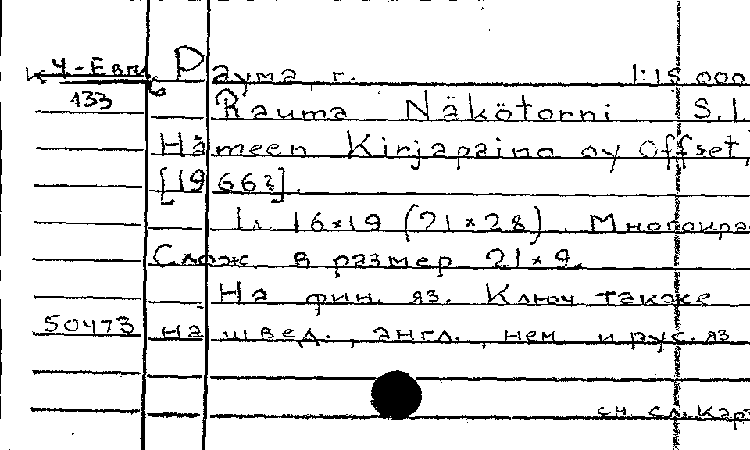 Ч-Евр. Раума, г. 1:15 000
133 Rauma Näkötorni S.l.
Hämeen Kirjapaino oy Offset,
[1966?].
1 л. 16×19 (21×28). Многокра
Слож. в размер 21×9.
На фин. яз. Ключ также
50473 на швед., англ., нем. и рус. яз.
см. сл. карт